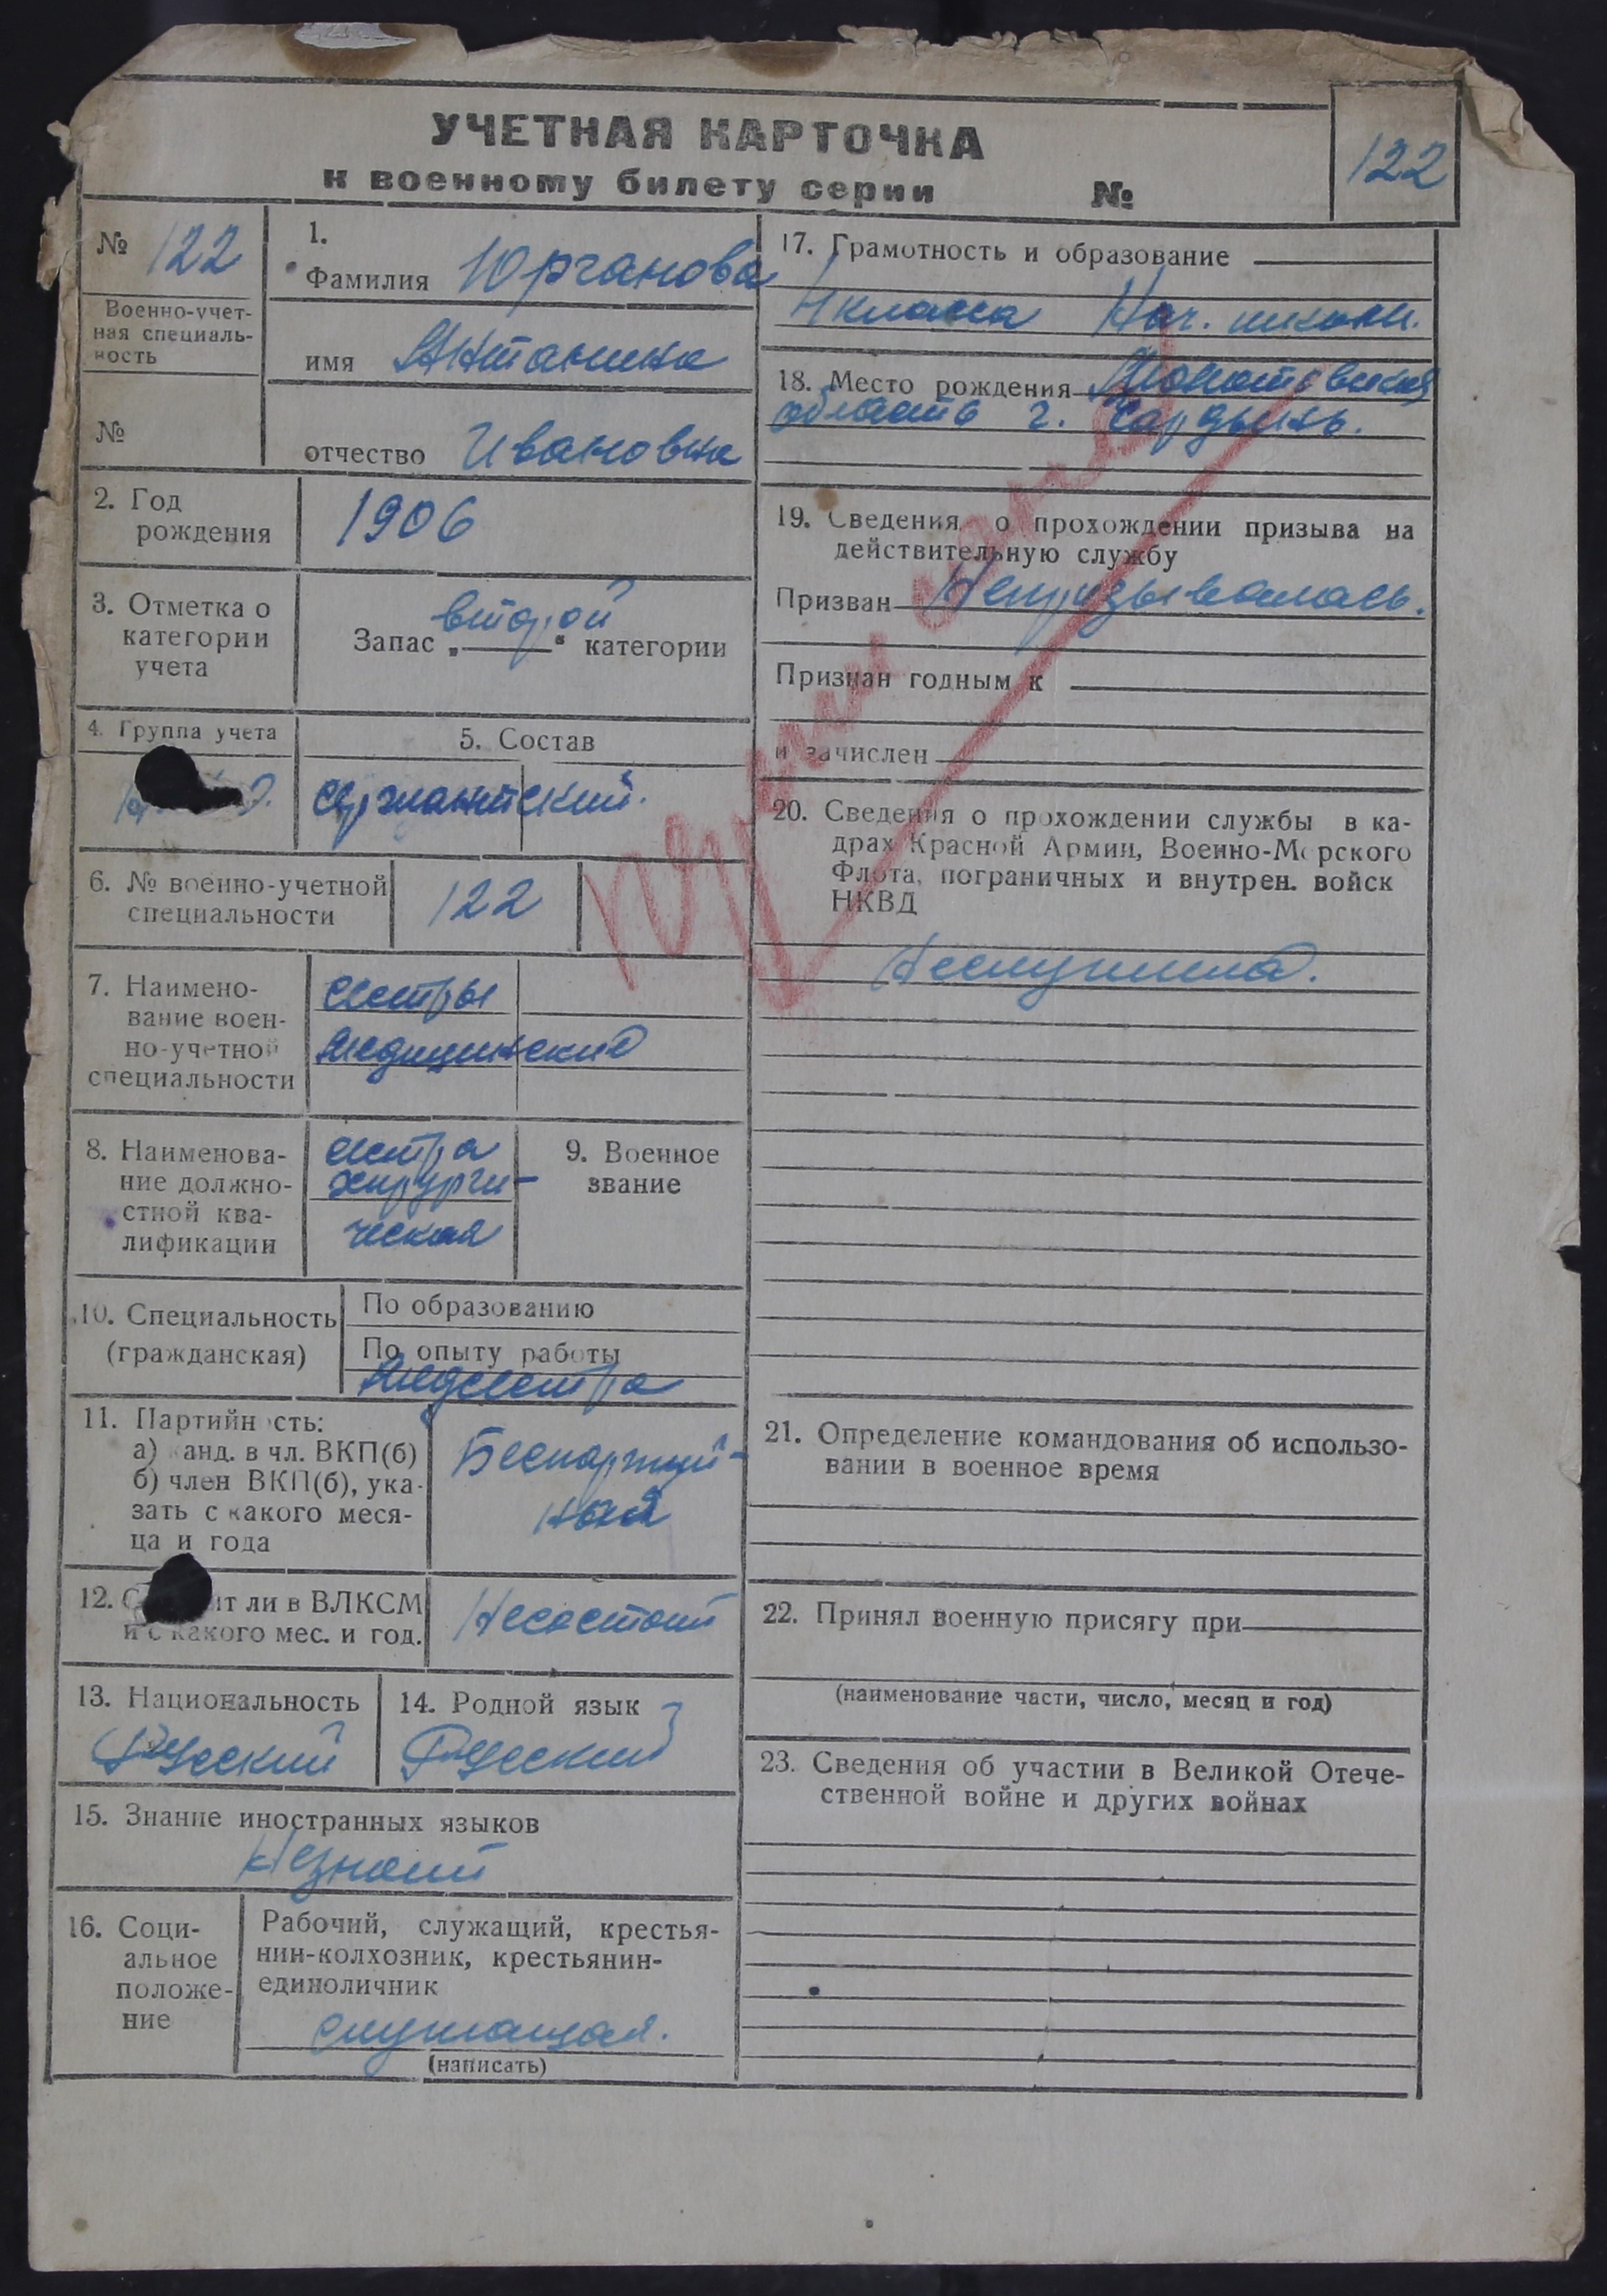 УЧЕТНАЯ КАРТОЧКА
к военному билету серии №
122
№ 122
Военно-учет-
ная специаль-
ность
№
1.
Фамилия Юрганова
имя Антанина
отчество Ивановна
2. Год
рождения
1906
3. Отметка о
категории
учета
Запас „второй“ категории
4. Группа учета
5. Состав
сержантский.
6. № военно-учетной
специальности
122
7. Наимено-
вание воен-
но-учетной
специальности
сестры
медицинские
8. Наименова-
ние должно-
стной ква-
лификации
сестра
хирурги-
ческая
9. Военное
звание
10. Специальность
(гражданская)
По образованию
По опыту работы
Медсестра
11. Партийн сть:
а) анд. в чл. ВКП(б)
б) член ВКП(б), ука-
зать с какого меся-
ца и года
Беспартий-
ная
12. С ит ли в ВЛКСМ
и с какого мес. и год.
Несостоит
13. Национальность
Русский
14. Родной язык
Русский
15. Знание иностранных языков
Незнает
16. Соци-
альное
положе-
ние
Рабочий, служащий, крестья-
нин-колхозник, крестьянин-
единоличник
служащая.
(написать)
17. Грамотность и образование
4 класса Нач. школы.
18. Место рождения Молотовская
область г. Чардынь.
19. Сведения о прохождении призыва на
действительную службу
Призван Непризывалась.
Признан годным к
и зачислен
20. Сведения о прохождении службы в ка-
драх Красной Армии, Военно-Морского
Флота, пограничных и внутрен. войск
НКВД
Неслужила.
21. Определение командования об использо-
вании в военное время
22. Принял военную присягу при
(наименование части, число, месяц и год)
23. Сведения об участии в Великой Отече-
ственной войне и других войнах